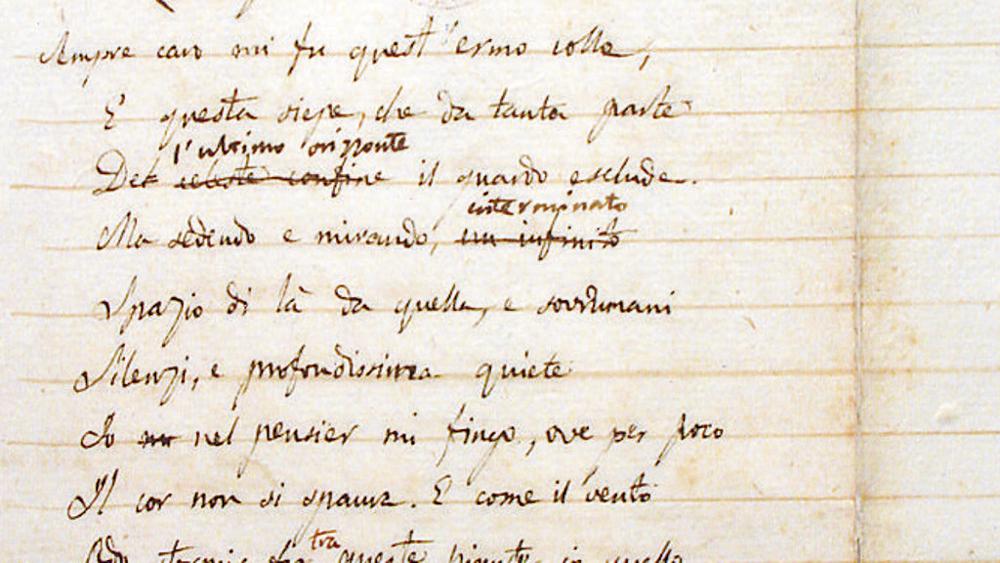 Sempre caro mi fu quest'ermo colle,
E questa siepe, che da tanta parte
l'ultimo orizzonte
Del celeste confine il guardo esclude.
interminato
Ma sedendo e mirando, un infinito
Spazio di là da quella, e sovrumani
Silenzi, e profondissima quiete
Io nel pensier mi fingo, ove per poco
Il cor non si spaura. E come il vento
tra
queste piante, io quello